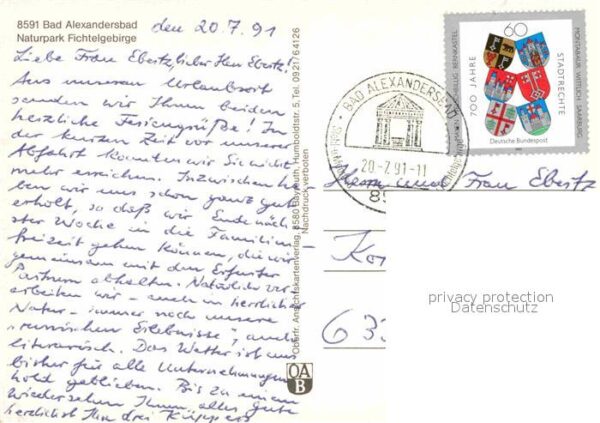 8591 Bad Alexandersbad
Naturpark Fichtelgebirge
den 20.7.91
Liebe Frau Ebertz, lieber Herr Ebertz!
Aus unserem Urlaubsort
senden wir Ihnen beiden
herzliche Feriengrüße! In
der kurzen Zeit vor unserer
Abfahrt konnten wir Sie nicht
mehr erreichen. Inzwischen ha-
ben wir uns schon ganz gut
erholt, so daß wir Ende näch-
ster Woche in die Familien-
freizeit gehen können, die wir
gemeinsam mit den Erfurter
Partnern abhalten. Natürlich ver-
arbeiten wir - auch in herrlicher
Natur - immer noch unsere
"russischen Erlebnisse", auch
literarisch. Das Wetter ist uns
bisher für alle Unternehmungen
hold geblieben. Bis zu einem
Wiedersehen Ihnen alles Gute
herzlichst Ihre drei Küppers
Oberfr. Ansichtskartenverlag, 8580 Bayreuth, Humboldtstr. 5, Tel. 0921/64126
Nachdruck verboten
OA
B
BAD ALEXANDERSBAD
20-7.91-11
85
60
700 JAHRE
STADTRECHTE
BERNKASTEL
MONTABAUR WITTLICH SAARBURG
Deutsche Bundespost
Herrn und Frau Ebertz
Ko
633
privacy protection
Datenschutz